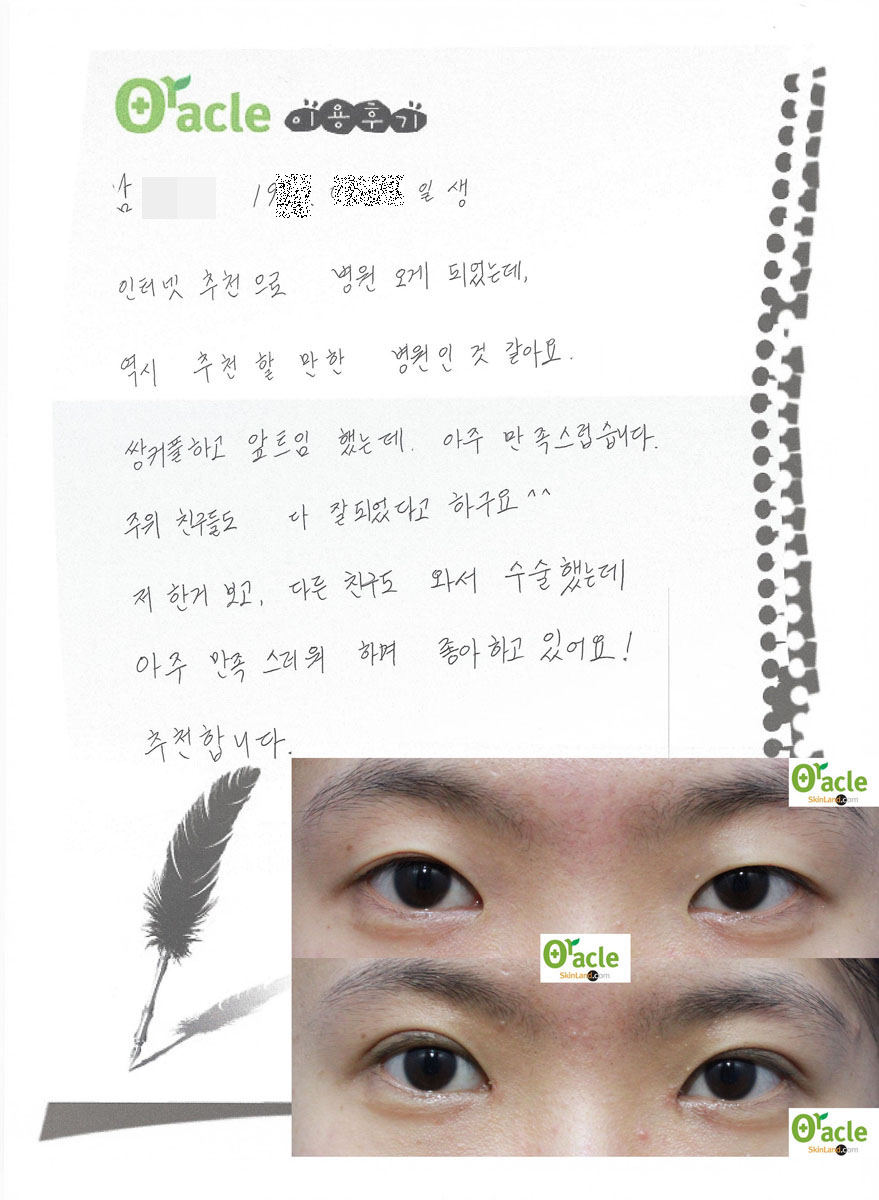 Oracle 이용후기
남 19 일생
인터넷 추천으로 병원 오게 되었는데,
역시 추천 할 만한 병원인 것 같아요.
쌍커플하고 앞트임 했는데. 아주 만족스럽습니다.
주위 친구들도 다 잘되었다고 하구요^^
저 한거 보고, 다른 친구도 와서 수술했는데
아주 만족 스러워 하며 좋아하고 있어요!
추천합니다.
Oracle
SkinLand.com
Oracle
SkinLand.com
Oracle
SkinLand.com